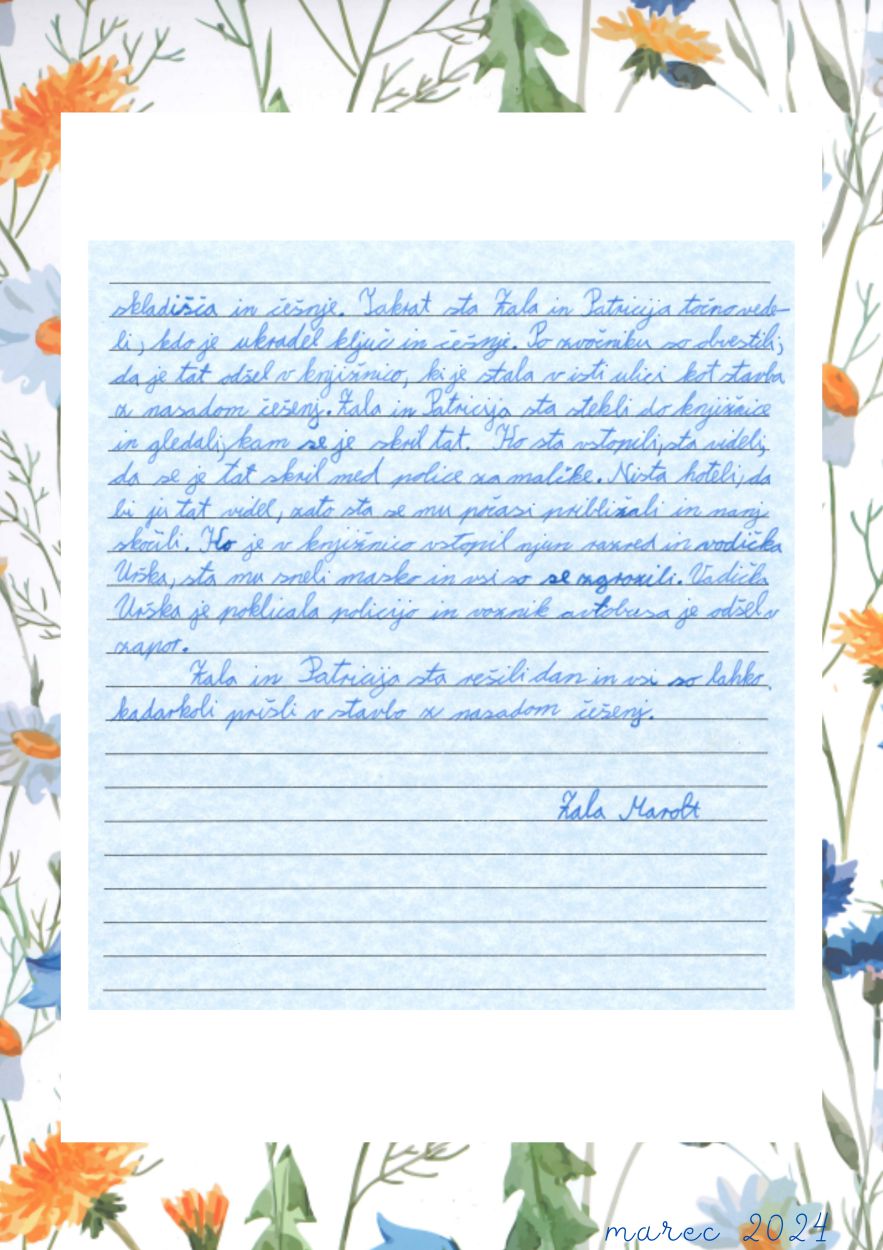 skladišča in češnje. Takrat sta Zala in Patricija točno vede-
li, kdo je ukradel ključ in češnje. Po zvočniku so obvestili,
da je tat odšel v knjižnico, ki je stala v isti ulici kot stavba
z nasadom češenj. Zala in Patricija sta stekli do knjižnice
in gledali, kam se je skril tat. Ko sta vstopili, sta videli,
da se je tat skril med police za malčke. Nista hoteli, da
bi ju tat videl, zato sta se mu počasi približali in nanj
skočili. Ko je v knjižnico vstopil njun razred in vodička
Urška, sta mu sneli masko in vsi so se zgrozili. Vodička
Urška je poklicala policijo in voznik avtobusa je odšel v
zapor.
Zala in Patricija sta rešili dan in vsi so lahko
kadarkoli prišli v stavbo z nasadom češenj.
Zala Marolt
marec 2024